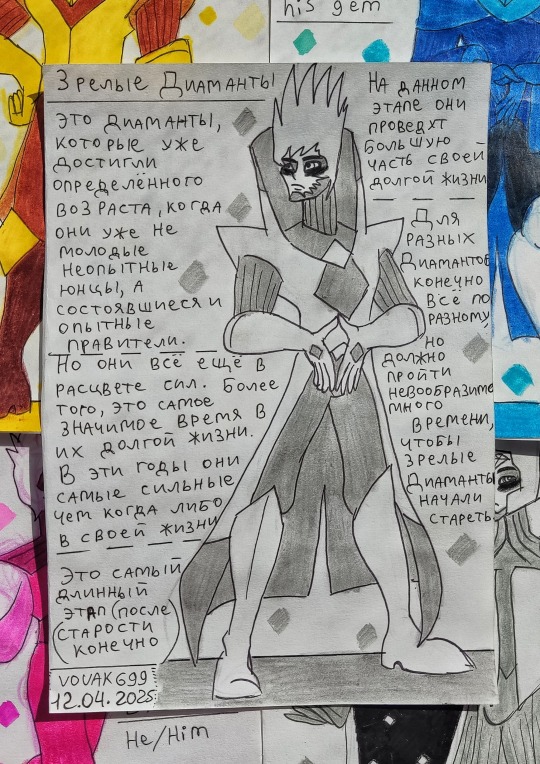 his gem
Зрелые Диаманты
это диаманты,
которые уже
достигли
определённого
возраста, когда
они уже не
молодые
неопытные
юнцы, а
состоявшиеся и
опытные
правители.
Но они всё ещё в
расцвете сил. Более
того, это самое
значимое время в
их долгой жизни.
В эти годы они
самые сильные
чем когда либо
в своей жизни
Это самый
длинный
этап (после
старости
конечно)
VOVAK699
12.04.2025
На данном
этапе они
проведут
большую
часть своей
долгой жизни
Для
разных
Диамантов
конечно
всё по
разному,
но
должно
пройти
невообразимо
много
времени,
чтобы
зрелые
Диаманты
начали
стареть
He/Him